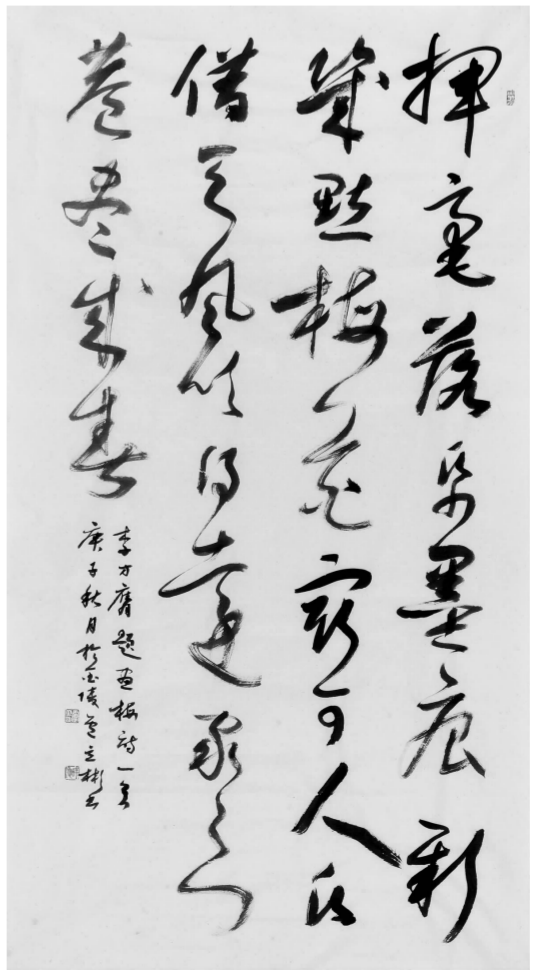 挥毫落纸墨痕新
几点梅花最可人愿
借天风吹得远家家门
巷尽成春
李方膺题画梅诗一首
庚子秋月于金陵 立彬书